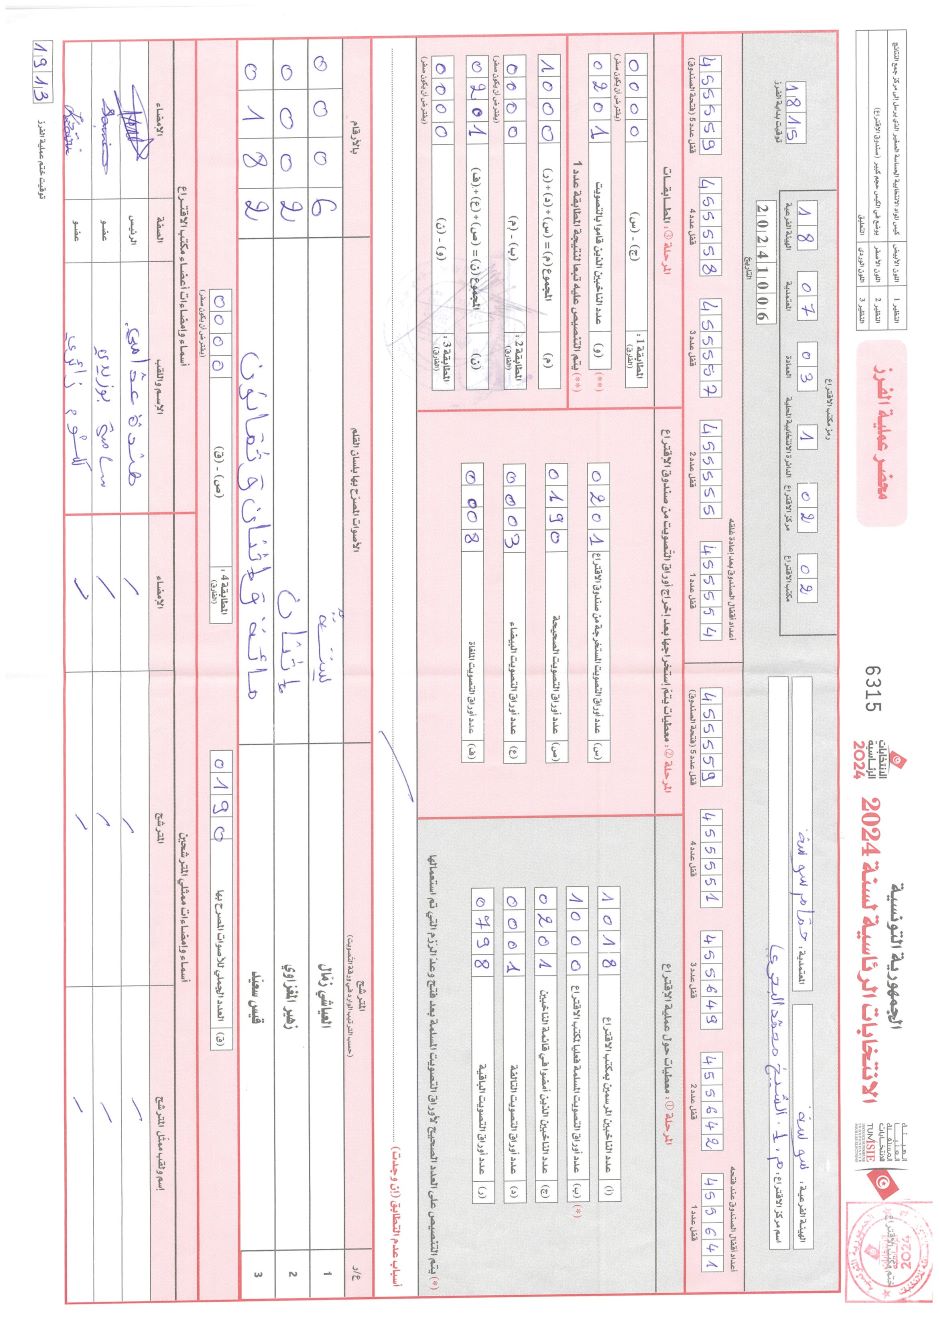 الجمهورية التونسية
الانتخابات الرئاسية لسنة 2024
الانتخابات
الرئاسية
2024
6315
محضر عملية الفرز
النظير 1 اللون الأبيض
النظير 2 اللون الأصفر يوضع في الكيس حجم كبير (صندوق الاقتراع)
النظير 3 اللون الوردي التعليق
ختم مكتب الاقتراع
الهيئة الفرعية : سوسة
المعتمدية :
اسم مركز الاقتراع :
رمز مكتب الاقتراع
18 07 03 1 02 02
الهيئة الفرعية المعتمدية العمادة الدائرة الانتخابية المحلية مركز الاقتراع مكتب الاقتراع
20241006
التاريخ
1815
توقيت بداية الفرز
أعداد أقفال الصندوق عند فتحه
455641 455642 455649 455551 455559
قفل عدد 1 قفل عدد 2 قفل عدد 3 قفل عدد 4 قفل عدد 5 (فتحة الصندوق)
أعداد أقفال الصندوق بعد إعادة غلقه
455554 455555 455557 455558 455559
قفل عدد 1 قفل عدد 2 قفل عدد 3 قفل عدد 4 قفل عدد 5 (فتحة الصندوق)
المرحلة 1 : معطيات حول عملية الاقتراع
(أ) عدد الناخبين المرسمين بمكتب الاقتراع 1018
(ب) عدد أوراق التصويت المسلمة فعليا لمكتب الاقتراع 1000 (*)
(ج) عدد الناخبين الذين أمضوا في قائمة الناخبين 0201
(د) عدد أوراق التصويت التالفة 0001
(ر) عدد أوراق التصويت الباقية 0798
(*) يتم التنصيص على العدد الصحيح لأوراق التصويت المسلمة بعد فتح وعد الرزم التي تم استعمالها
المرحلة 2 : معطيات يتم إستخراجها بعد إخراج أوراق التصويت من صندوق الاقتراع
(س) عدد أوراق التصويت المستخرجة من صندوق الاقتراع 0201
(ص) عدد أوراق التصويت الصحيحة 0190
(ع) عدد أوراق التصويت البيضاء 0003
(ف) عدد أوراق التصويت الملغاة 0008
المرحلة 3 : المطابقات
المطابقة 1 : (الفارق) (ج) - (س) 0000 (يفترض أن يكون صفر)
(**) (و) عدد الناخبين الذين قاموا بالتصويت 0201
(**) يتم التنصيص عليه تبعا لنتيجة المطابقة عدد 1
(م) المجموع (م) = (س)+(د)+(ر) 1000
المطابقة 2 : (الفارق) (ب) - (م) 0000 (يفترض أن يكون صفر)
(ن) المجموع (ن) = (ص)+(ع)+(ف) 0201
المطابقة 3 : (الفارق) (و) - (ن) 0000 (يفترض أن يكون صفر)
أسباب عدم التطابق (إن وجدت)
ع/د المترشح (حسب الترتيب الوارد في ورقة التصويت) الأصوات المصرّح بها بلسان القلم بالأرقام
1 العياشي زمّال ستة 006
2 زهير المغزاوي إثنان 002
3 قيس سعيد مائة و إثنان و ثمانون 0182
(ق) العدد الجملي للأصوات المصرح بها 0190
المطابقة 4 : (الفارق) (ص) - (ق) 000 (يفترض أن يكون صفر)
أسماء وإمضاءات ممثلي المترشحين
إسم ولقب ممثّل المترشح المترشح الإمضاء
أسماء وإمضاءات أعضاء مكتب الاقتراع
الإسم واللقب الصفة الإمضاء
الرئيس
عضو
عضو
1913
توقيت ختم عملية الفرز